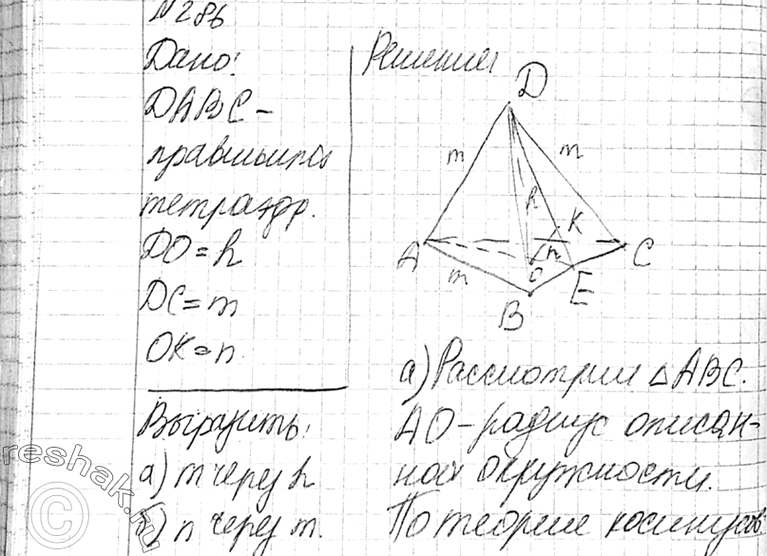 N286
Дано:
DABC-
правильный
тетраэдр.
DO=h
DC=m
OK=n
Выразить:
а) m через h
б) n через m.
Решение:
D
m
m
h
K
n
A
O
C
m
E
B
а) Рассмотрим △ABC.
AO-радиус описан-
ной окружности.
По теореме косинусов
reshak.ru
©